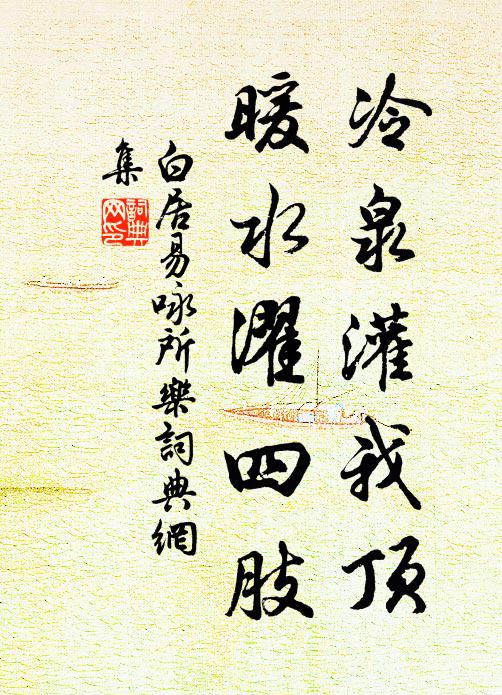 冷泉灌我頂
暖水濯四肢
白居易咏所樂詞典網
集
詞典
网印